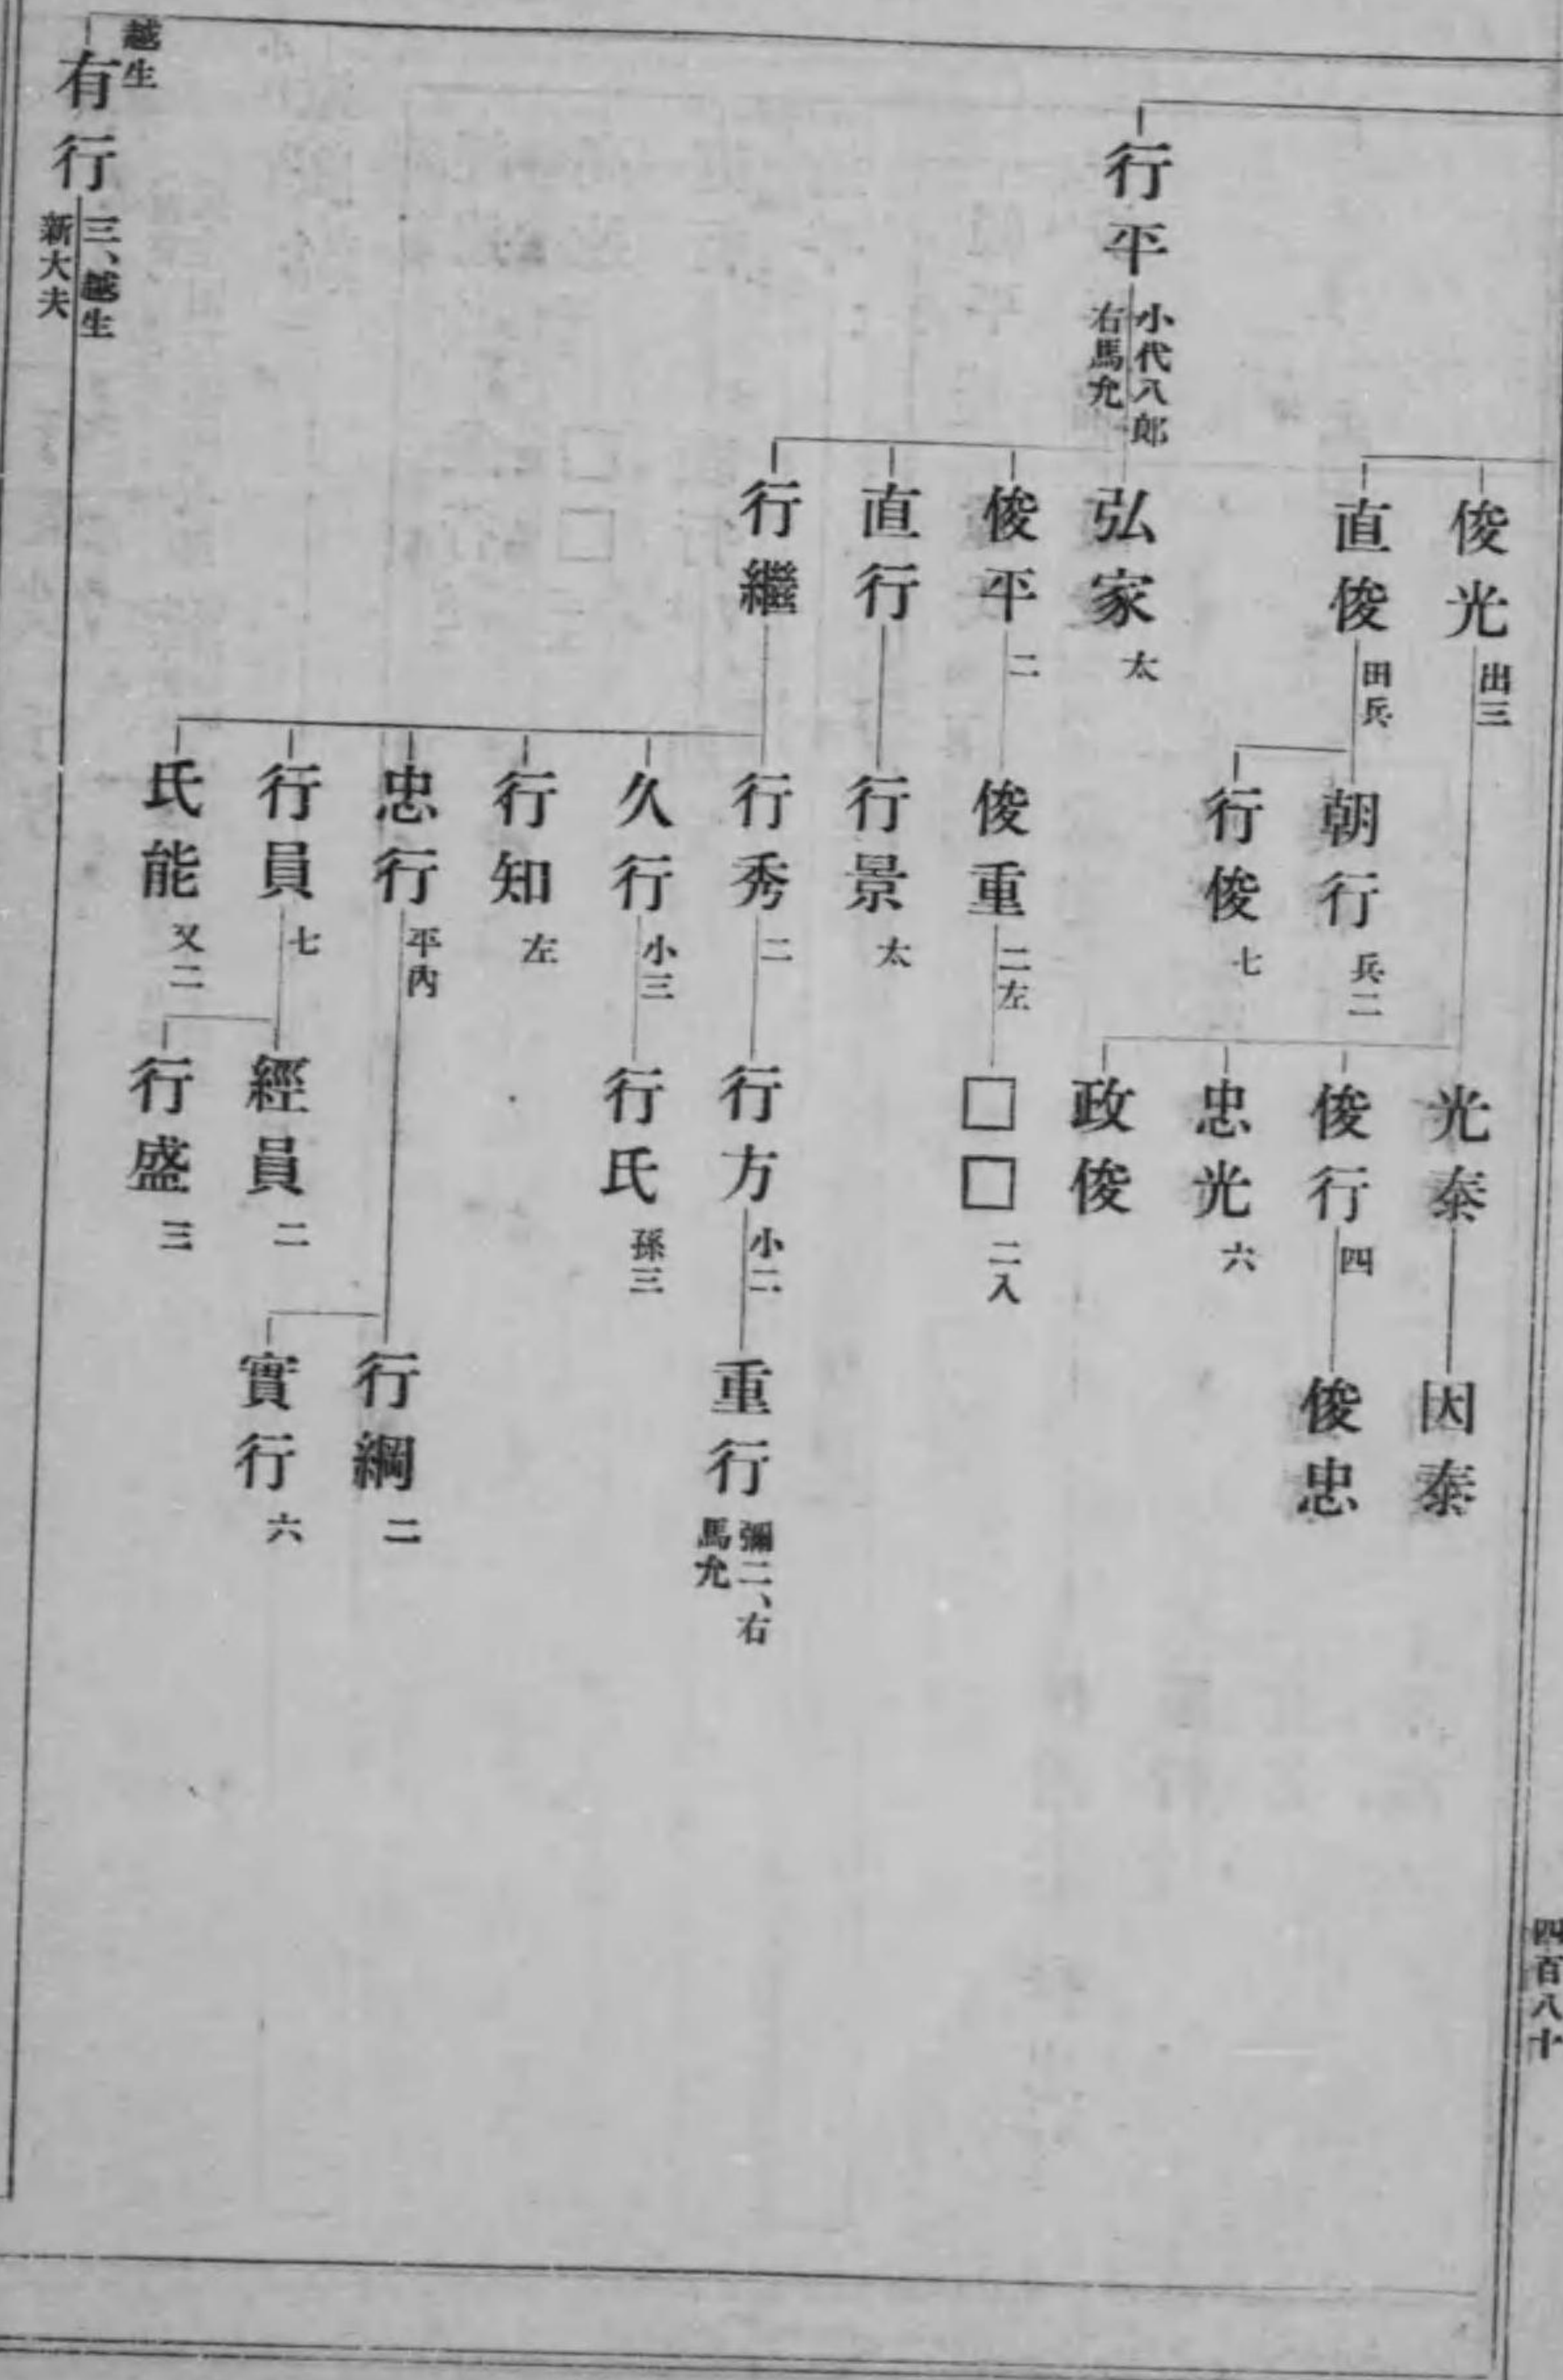 四百八十
俊光 出三
光泰
因泰
俊行 四
俊忠
忠光 六
政俊
直俊 田兵
朝行 兵二
行俊 七
行平 小代八郎
右馬允
弘家 太
俊平 二
俊重 二左
□□ 二入
直行
行景 太
行繼
行秀 二
行方 小二
重行 彌二、右
馬允
久行 小三
行氏 孫三
行知 左
忠行 平內
行綱 二
實行 六
行員 七
經員 二
行盛 三
氏能 又二
越生
有行 三、越生
新大夫